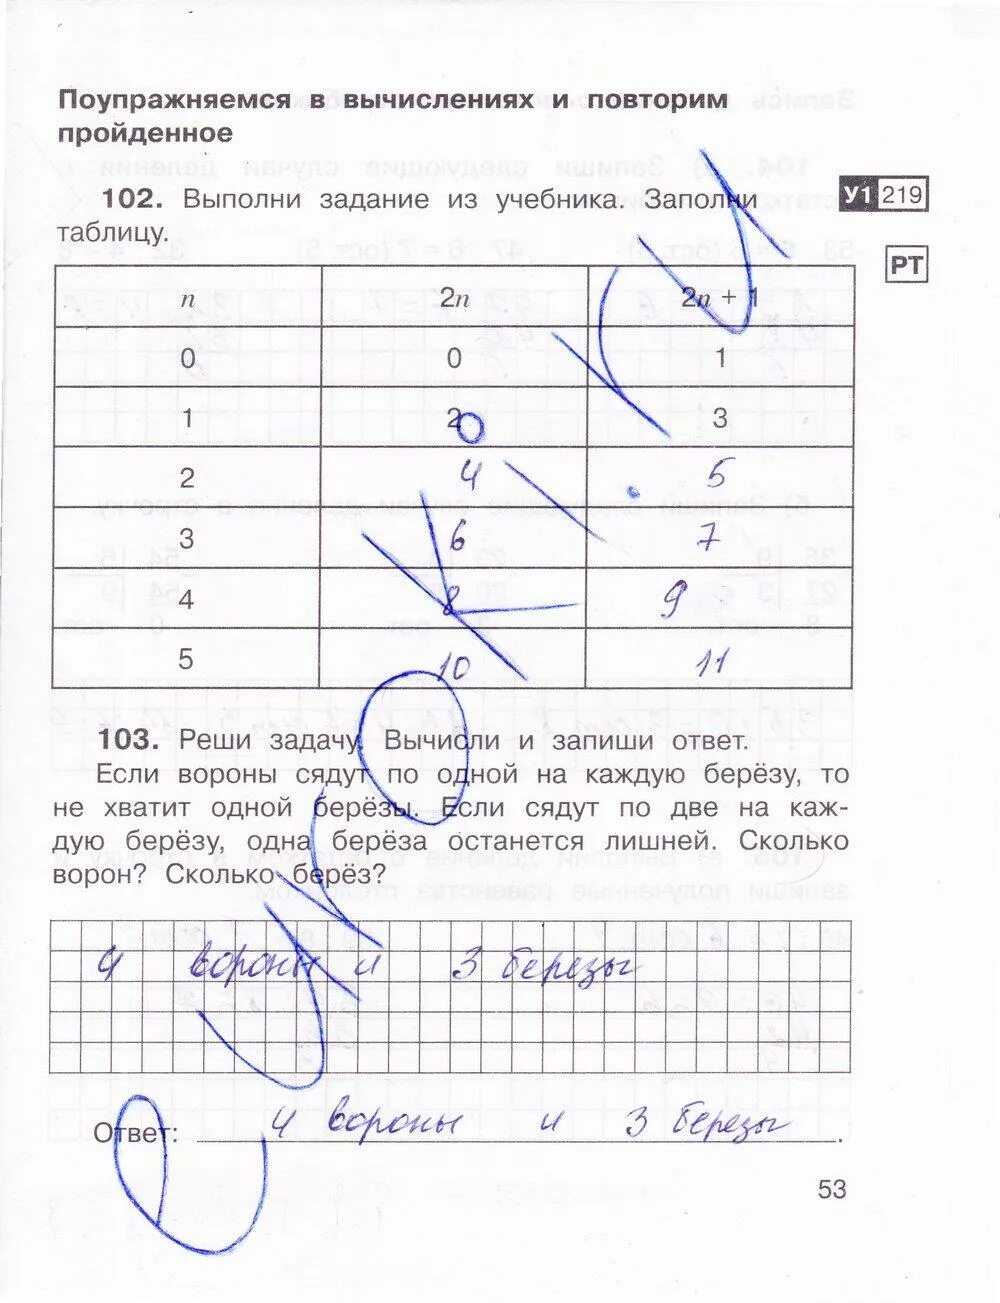 Поупражняемся в вычислениях и повторим
пройденное
102. Выполни задание из учебника. Заполни
таблицу.
У1 219
РТ
n 2n 2n + 1
0 0 1
1 2 3
2 4 5
3 6 7
4 8 9
5 10 11
103. Реши задачу. Вычисли и запиши ответ.
Если вороны сядут по одной на каждую берёзу, то
не хватит одной берёзы. Если сядут по две на каж-
дую берёзу, одна берёза останется лишней. Сколько
ворон? Сколько берёз?
4 вороны и 3 березы
Ответ: 4 вороны и 3 березы.
53